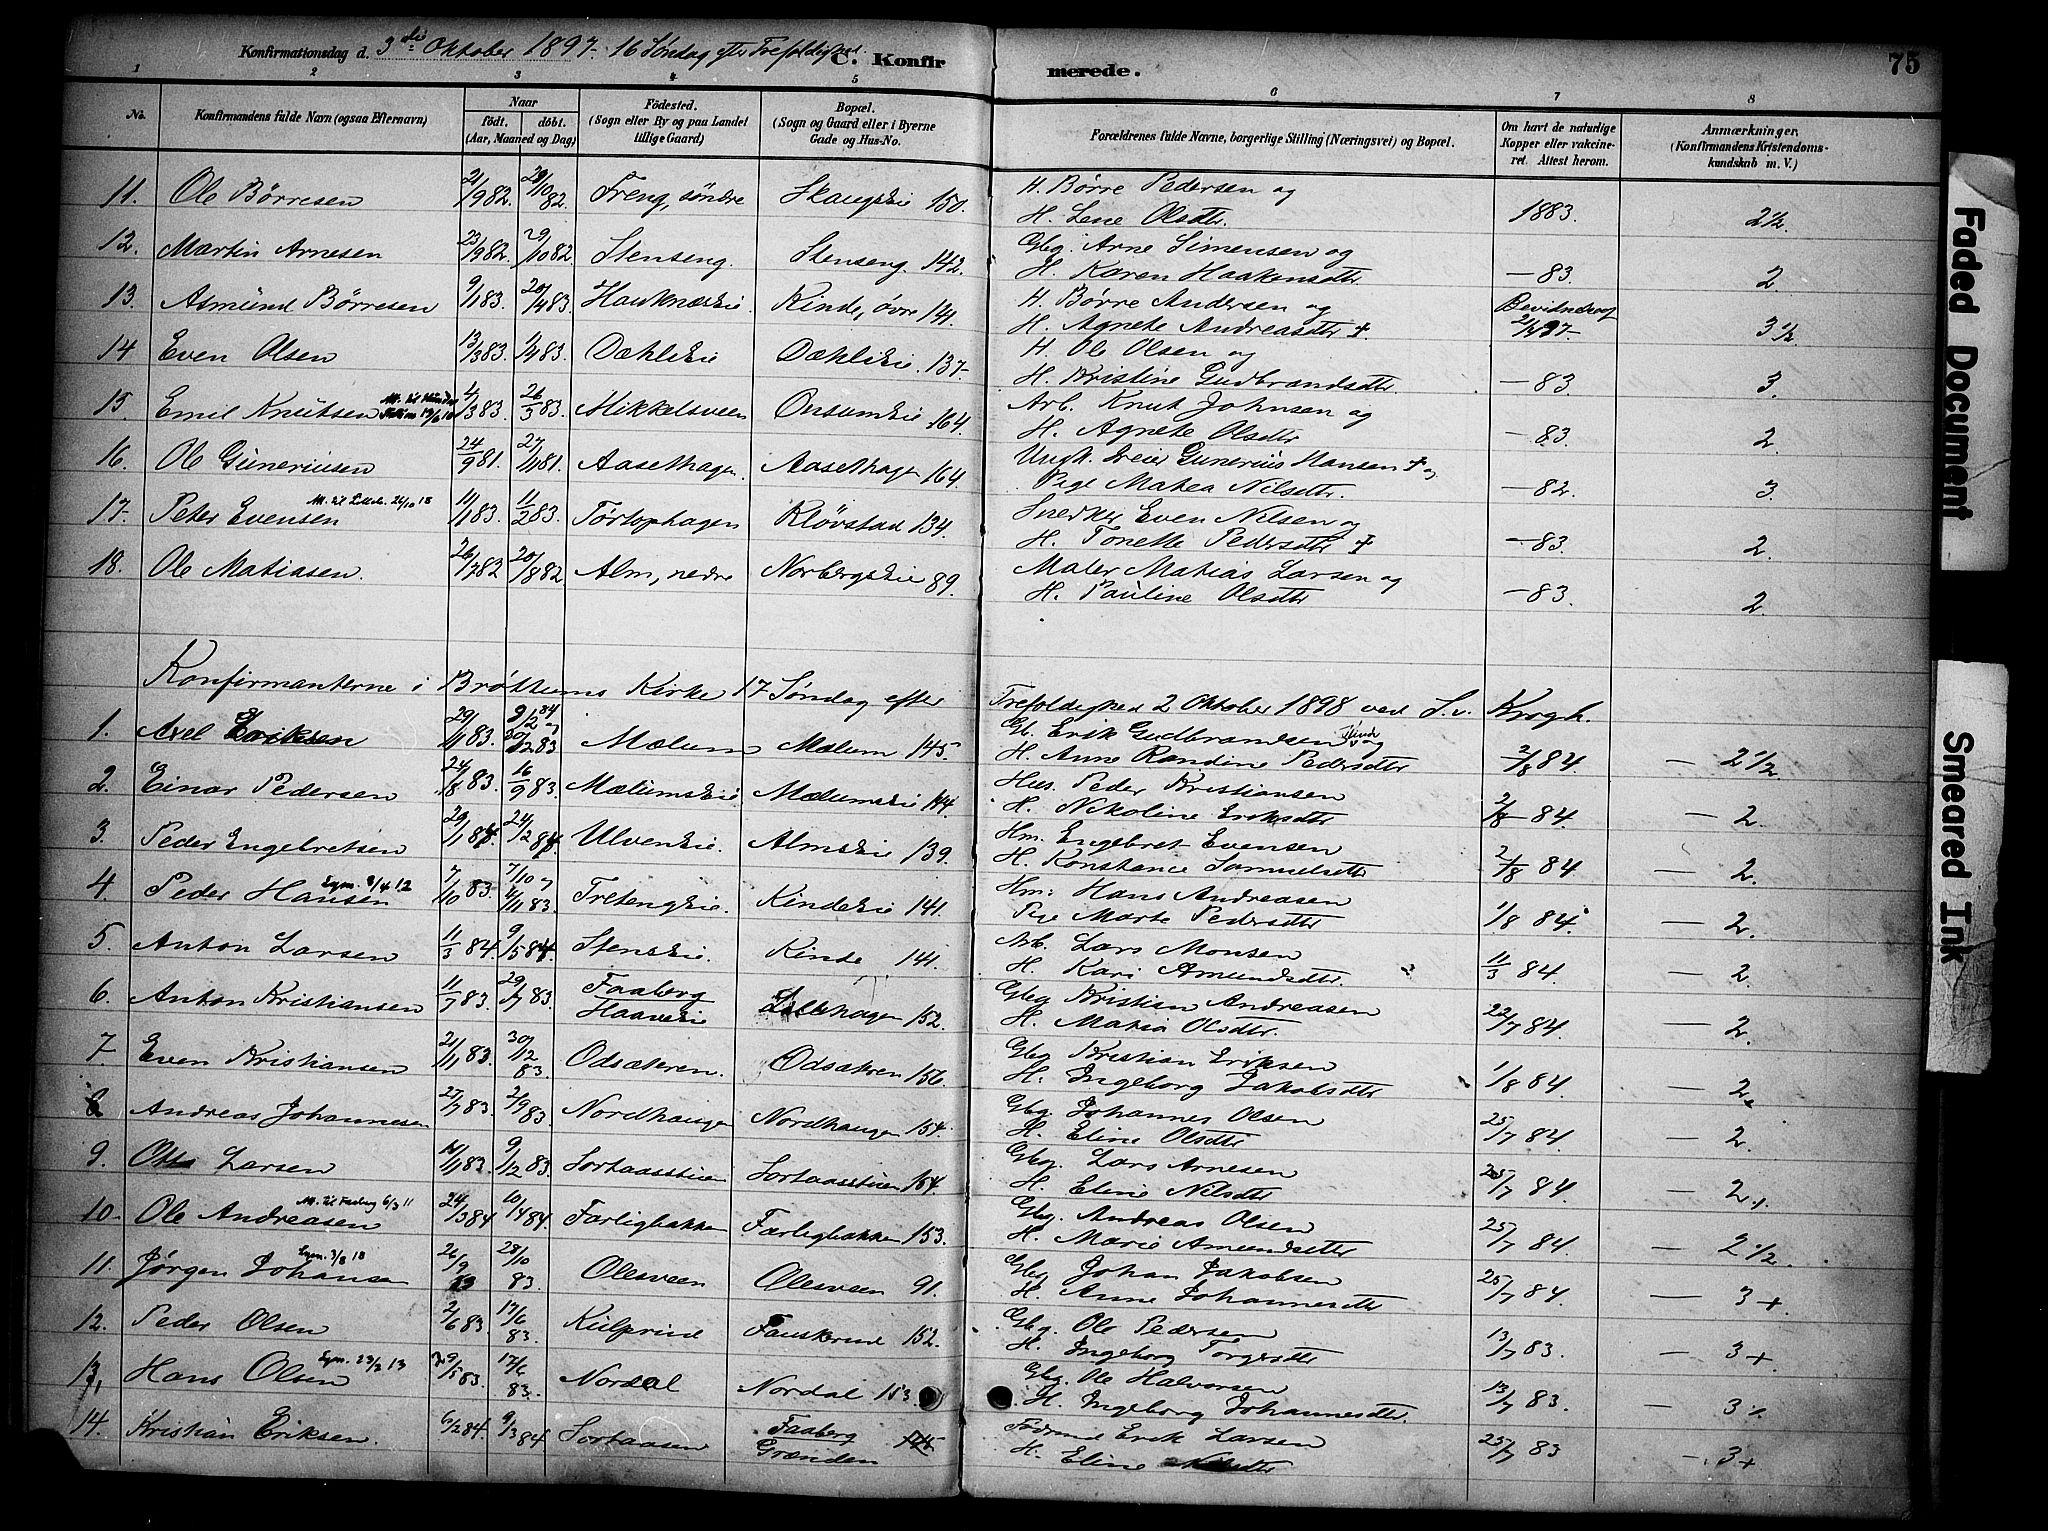 Konfirmationsdag d. 3die Oktober 1897. 16 Søndag efter Trefoldighed. C. Konfirmerede. 75
1 2 3 4 5 6 7 8
No. Konfirmandens fulde Navn (ogsaa Efternavn) Naar født. døbt. (Aar, Maaned og Dag) Fødested. (Sogn eller By og paa Landet tillige Gaard) Bopæl. (Sogn og Gaard eller i Byerne Gade og Hus-No. Forældrenes fulde Navne, borgerlige Stilling (Næringsvei) og Bopæl. Om havt de naturlige Kopper eller vakcineret. Attest herom. Anmærkninger. (Konfirmandens Kristendomskundskab m. V.)
11. Ole Børresen 21/9 82 29/10 82. Freng, søndre Skaugseie 150. H. Børre Pedersen og
H. Lene Olsdtr 1883. 2½.
12. Martin Arnesen 23/9 82. 29/10 82. Stenseng. Stenseng. 142. Gbg. Arne Simensen og
H. Karen Haakensdtr. — 83. 2.
13. Asmund Børresen 9/1 83. 20/4 83. Hauknæseie Kinde, øvre 141. H. Børre Andersen og
H. Agnete Andreasdtr +. 3½
14 Even Olsen 13/3 83. 1/4 83. Dæhlieie Dæhlieie. 137. H. Ole Olsen og
H. Kristine Gudbrandsdtr. — 83. 3.
15. Emil Knutsen 4/3 83. 26/3 83. Mikkelsveen Onsumeie 164. Arb. Knut Johnsen og
H. Agnete Olsdtr — 83. 2.
16. Ole Guneriusen 24/9 81. 27/11 81. Aaselhagen. Aaselhagen 164. Ungk. Gunerius Hansen + og
Pige Matea Nilsdtr. — 82. 3.
17. Peter Evensen 11/1 83. 11/2 83. Tørtophagen Kløvstad 134. Snedker Even Nilsen og
H. Tonette Pedersdtr + — 83. 2.
18. Ole Matiasen. 26/7 82 20/8 82 Alm, nedre Norbergseie 89. Maler Matias Larsen og
H. Pauline Olsdtr — 83. 2.
Konfirmanterne i Brøttums Kirke 17 Søndag efter Trefoldighed 2 Oktober 1898 ved S. v. Krogh.
1. Axel Eriksen 29/11 83. 9/2 84 og 30/12 83. Mælum Mælum 145. Gb. Erik Gudbrandsen og
H. Anne Randine Pedersdtr 2/8 84. — 2½.
2. Einar Pedersen 24/8 83. 16/9 83. Mælumseie Mælumseie 144. Hus. Peder Kristiansen
H. Nikoline Eriksdtr 2/8 84. — 2.
3. Peder Engebretsen 29/1 84. 24/2 84. Ulveneie. Almseie 139. Hm. Engebret Evensen
H. Konstance Samuelsdtr 2/8 84 — 2.
4. Peder Hansen 7/10 83. 11/11 83. Tretengseie. Kindeeie 141. Hm: Hans Andreasen
Pige Marte Pedersdtr 1/8 84. — 2.
5. Anton Larsen 11/3 84. 9/5 84. Stenseie. Kinde 141. Arb. Lars Monsen
H. Kari Amundsdtr 11/3 84. — 2.
6. Anton Kristiansen 11/7 83. 29/7 83. Faaberg Haaveeie Lillehagen 152. Gbg Kristian Andreasen
H. Matia Olsdtr. 22/7 84. — 2.
7. Even Kristiansen 21/11 83. 30/12 83. Odsæteren. Odsætren 156. Gbg Kristian Eriksen
H. Ingeborg Jakobsdtr 1/8 84. — 2.
8 Andreas Johannesen 27/7 83. 2/9 83. Nordhaugen Nordhaugen 154. Gbg Johannes Olsen
H. Eline Olsdtr 25/7 84. — 2.
9. Otto Larsen 14/11 83. 9/12 83. Sortaasstuen Sortaasstuen 154. Gbg. Lars Arnesen
H. Eline Nilsdtr 25/7 84. — 2+
10. Ole Andreasen M. til Faaberg 6/3 11 24/3 84 10/4 84. Farligbakken Farligbakken 153. Gbg. Andreas Olsen
H. Marie Amundsdtr 25/7 84. — 2½.
11. Jørgen Johansen 26/9 83 28/10 83 Olesveen Olesveen 91. Gbg Johan Jakobsen
H. Anne Johannesdtr 25/7 84. — 3+.
12. Peder Olsen 2/6 83. 17/6 83. Kulprud Fauskerud 152. Gbg. Ole Pedersen
H. Ingeborg Torgersdtr 13/7 83. — 3+
13. Hans Olsen 29/5 83. 17/6 83. Nordal Nordal 153 Gbg. Ole Halvorsen
H. Ingeborg Johannesdtr 13/7 83. — 3½
14. Kristian Eriksen. 6/2 84. 9/3 84 Sortaasen Faaberg Grænden Erik Larsen
H. Eline Nilsdtr 25/7 83 — 3+
Faded Document
Smeared Ink